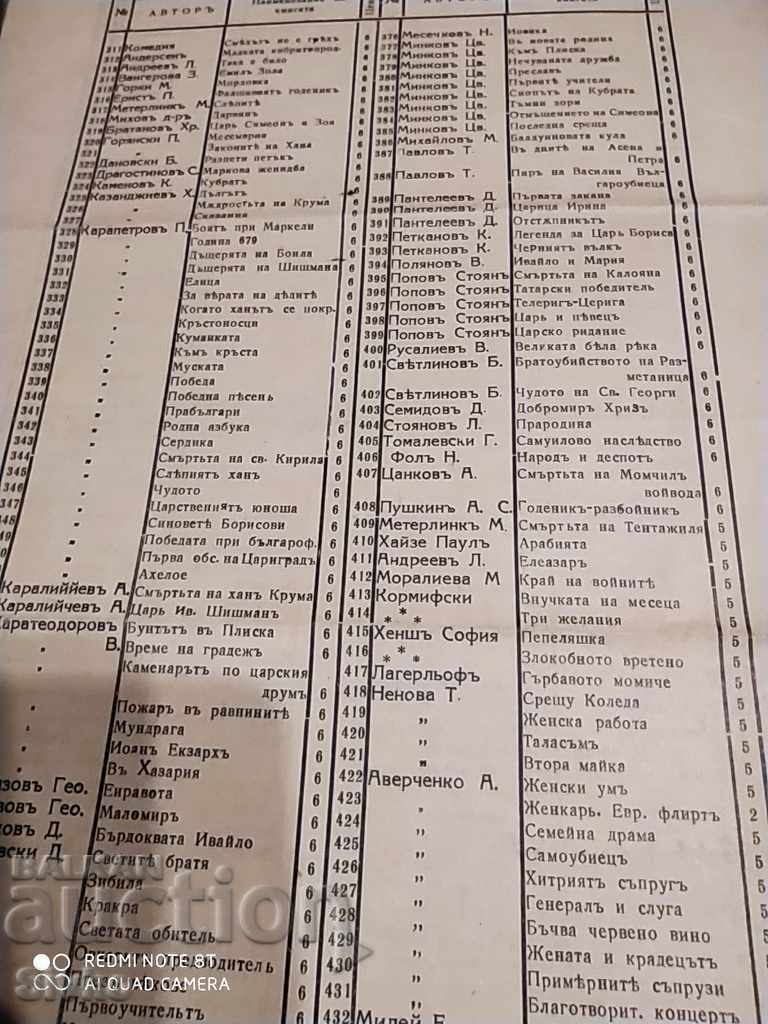 № АВТОРЪ № 
311 Комедия Смѣхътъ не е грѣхъ 6
312 Андерсенъ Малката кибритопрод. 6
313 Андреевъ Л. Така е било 6
314 Вангерова З. Емилъ Зола 6
315 Горки М. Мордовка 6
316 Ернстъ П. годеникъ 6
317 Метерлинкъ М. Слѣпитѣ 6
318 Миховъ д-ръ Дарвинъ 6
319 Братановъ Хр. Царь Симеонъ и Зоя 6
320 Горянски П. Месемврия 6
321 „ Законитѣ на Хана 6
322 Дановски Б. Разпети петъкъ 6
323 Драгостиновъ С. Маркова женидба 6
324 Каменовъ К. Кубратъ 6
325 Казанджиевъ Х. Дългътъ 6
326 „ Мѫдростьта на Крума 6
327 „ Славянка 6
328 Карапетровъ П. Боятъ при Маркели 6
329 „ Година 679 6
330 „ Дъщерята на Боила 6
331 „ Дъщерята на Шишмана 6
332 „ Елица 6
333 „ За вѣрата на дѣдитѣ 6
334 „ Когато ханътъ се покр. 6
335 „ Кръстоносци 6
336 „ Куманката 6
337 „ Къмъ кръста 6
338 „ Муската 6
339 „ Победа 6
340 „ Победна пѣсень 6
341 „ Прабългари 6
342 „ Родна азбука 6
343 „ Сердика 6
344 „ Смъртьта на св. Кирила 6
345 „ Слѣпиятъ ханъ 6
346 „ Чудото 6
347 „ Царствениятъ юноша 6
348 „ Синоветѣ Борисови 6
349 „ Победата при българоф. 6
„ Първа обс. на Цариградъ 6
„ Ахелое 6
Каралиййевъ А. Смъртьта на ханъ Крума 6
Каралийчевъ А. Царь Ив. Шишманъ 6
Каратеодоровъ Бунтътъ въ Плиска 6
В. Време на градежъ 6
„ Каменарътъ по царския
друмъ 6
„ Пожаръ въ равнинитѣ 6
„ Мундрага 6
„ Иоанъ Екзархъ 6
„ Въ Хазария 6
зовъ Гео. Енравота 6
зовъ Гео. Маломиръ 6
ковъ Д. Бърдоквата Ивайло 6
вски Д. Светитѣ братя 6
Зибила 6
Кракра 6
Светата обитель 6
Первоучительтъ
376 Месечковъ Н. Новака 6
377 Минковъ Цв. Въ новата родина 6
378 Минковъ Цв. Къмъ Плиска 6
379 Минковъ Цв. Нечуваната дружба 6
380 Минковъ Цв. Преславъ 6
381 Минковъ Цв. Първитѣ учители 6
382 Минковъ Цв. Снопътъ на Кубрата 6
383 Минковъ Цв. Тъмни зори 6
384 Минковъ Цв. Отмъщението на Симеона 6
385 Минковъ Цв. Последна среща 6
386 Михайловъ М. Балдуиновата кула 6
387 Павловъ Т. Въ днитѣ на Асена и
Петра 6
388 Павловъ Т. Пиръ на Василия Бъл-
гароубиеца 6
389 Пантелеевъ Д. Първата закана 6
390 Пантелеевъ Д. Царица Ирина 6
391 Пантелеевъ Д. Отстѫпникътъ 6
392 Петкановъ К. Легенда за Царь Бориса 6
393 Петкановъ К. Черниятъ вълкъ 6
394 Поляновъ В. Ивайло и Мария 6
395 Поповъ Стоянъ Смъртьта на Калояна 6
396 Поповъ Стоянъ Татарски победитель 6
397 Поповъ Стоянъ Телеригъ-Церига 6
398 Поповъ Стоянъ Царь и пѣвецъ 6
399 Поповъ Стоянъ Царско ридание 6
400 Русалиевъ В. Великата бѣла рѣка 6
401 Свѣтлиновъ Б. Братоубийството на Раз-
метаница 6
402 Свѣтлиновъ Б. Чудото на Св. Георги 6
403 Семидовъ Д. Добромиръ Хризъ 6
404 Стояновъ Л. Прародина 6
405 Томалевски Г. Самуилово наследство 6
406 Фолъ Н. Народъ и деспотъ 6
407 Цанковъ А. Смъртьта на Момчилъ
войвода 6
408 Пушкинъ А. С. Годеникъ-разбойникъ 6
409 Метерлинкъ М. Смъртьта на Тентажиля 5
410 Хайзе Паулъ Арабията 5
411 Андреевъ Л. Елеазаръ 5
412 Моралиева М Край на войнитѣ 5
413 Кормифски Внучката на месеца 5
414 *** Три желания 5
415 Хеншъ София Пепеляшка 5
416 *** Злокобното вретено 5
417 Лагерльофъ Гърбавото момиче 5
418 Ненова Т. Срещу Коледа 5
419 „ Женска работа 5
420 „ Таласъмъ 5
421 „ Втора майка 5
422 Аверченко А. Женски умъ 5
423 „ Женкарь. Евр. флиртъ 2
424 „ Семейна драма 5
425 „ Самоубиецъ 5
426 „ Хитриятъ съпругъ 5
427 „ Генералъ и слуга 5
428 „ Бъчва червено вино 5
429 „ Жената и крадецътъ 5
430 „ Примѣрнитѣ съпрузи
431 „ Благотворит. концертъ
432 Милей Е.
auction
REDMI NOTE 8T
AI QUAD CAMERA